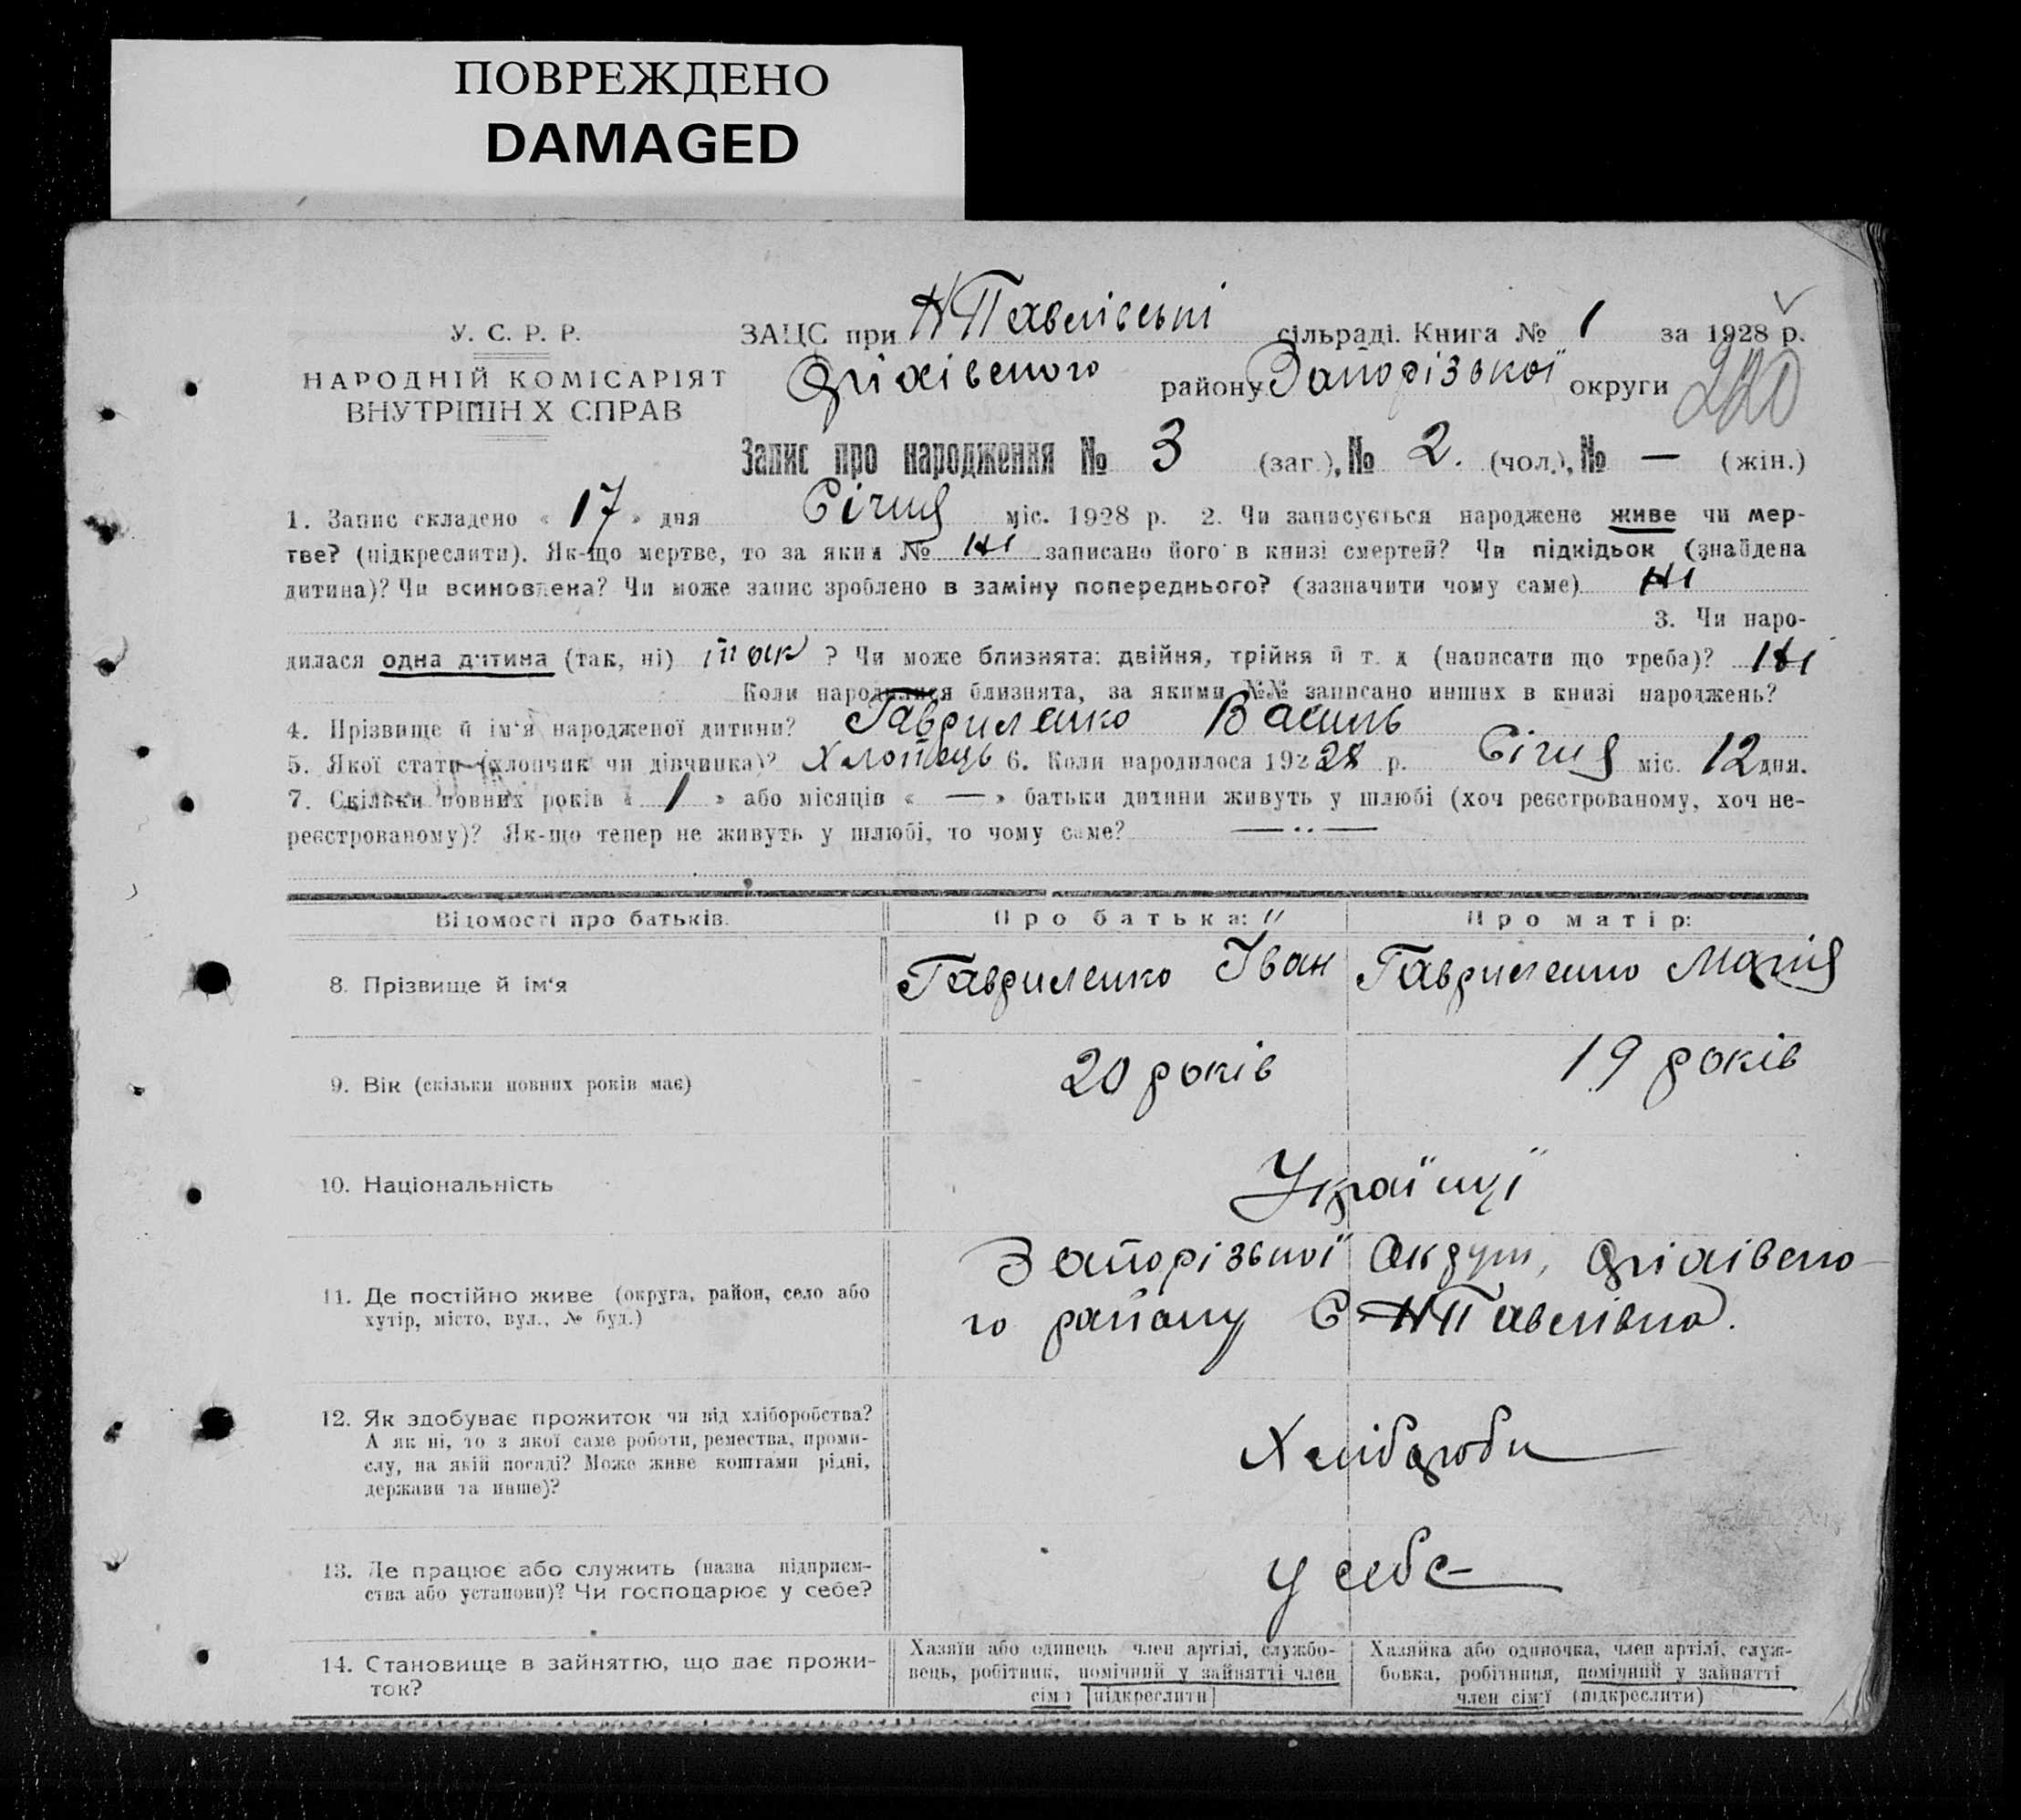 ПОВРЕЖДЕНО
DAMAGED
У. С. Р. Р.
НАРОДНІЙ КОМІСАРІЯТ
ВНУТРІШН Х СПРАВ
ЗАЦС при НПавлівські сільраді. Книга № 1 за 1928 р.
району Запорізької округи
Запис про народження № 3 (заг.), № 2. (чол.), № — (жін.)
1. Запис складено « 17 » дня Січня міс. 1928 р. 2. Чи записується народжене живе чи мер-
тве? (підкреслити). Як-що мертве, то за яким № Ні записано його в книзі смертей? Чи підкідьок (знайдена
дитина)? Чи всиновлена? Чи може запис зроблено в заміну попереднього? (зазначити чому саме) Ні
3. Чи наро-
дилася одна дитина (так, ні) так ? Чи може близнята: двійня, трійня й т. д (написати що треба)? Ні
Коли народилися близнята, за якими №№ записано инших в книзі народжень?
4. Прізвище й ім‘я народженої дитини? Гавриленко Василь
5. Якої стати (хлопчик чи дівчинка)? Хлопець 6. Коли народилося 192 28 р. Січня міс. 12 дня.
7. Скільки повних років « 1 » або місяців « — » батьки дитини живуть у шлюбі (хоч реєстрованому, хоч не-
реєстрованому)? Як-що тепер не живуть у шлюбі, то чому саме? — .. —
Відомості про батьків. Про батька: Про матір:
8. Прізвище й ім‘я Гавриленко Іван Гавриленко Марія
9. Вік (скільки повних років має) 20 років 19 років
10. Національність Українці
11. Де постійно живе (округа, район, село або Запорізької Округи,
хутір, місто, вул., № буд.) го району С НПавлівка.
12. Як здобуває прожиток чи від хліборобства?
А як ні, то з якої саме роботи, ремества, проми- Хлібороби
слу, на якій посаді? Може живе коштами рідні,
держави та инше)?
13. Де працює або служить (назва підприєм- У себе
ства або установи)? Чи господарює у себе?
14. Становище в зайняттю, що дає прожи-
ток?
Хазяїн або одинець член артілі, службо-
вець, робітник, помічний у зайнятті член
сім ї [підкреслити]
Хазяйка або одиночка, член артілі, служ-
бовка, робітниця, помічний у зайнятті
член сім'ї (підкреслити)